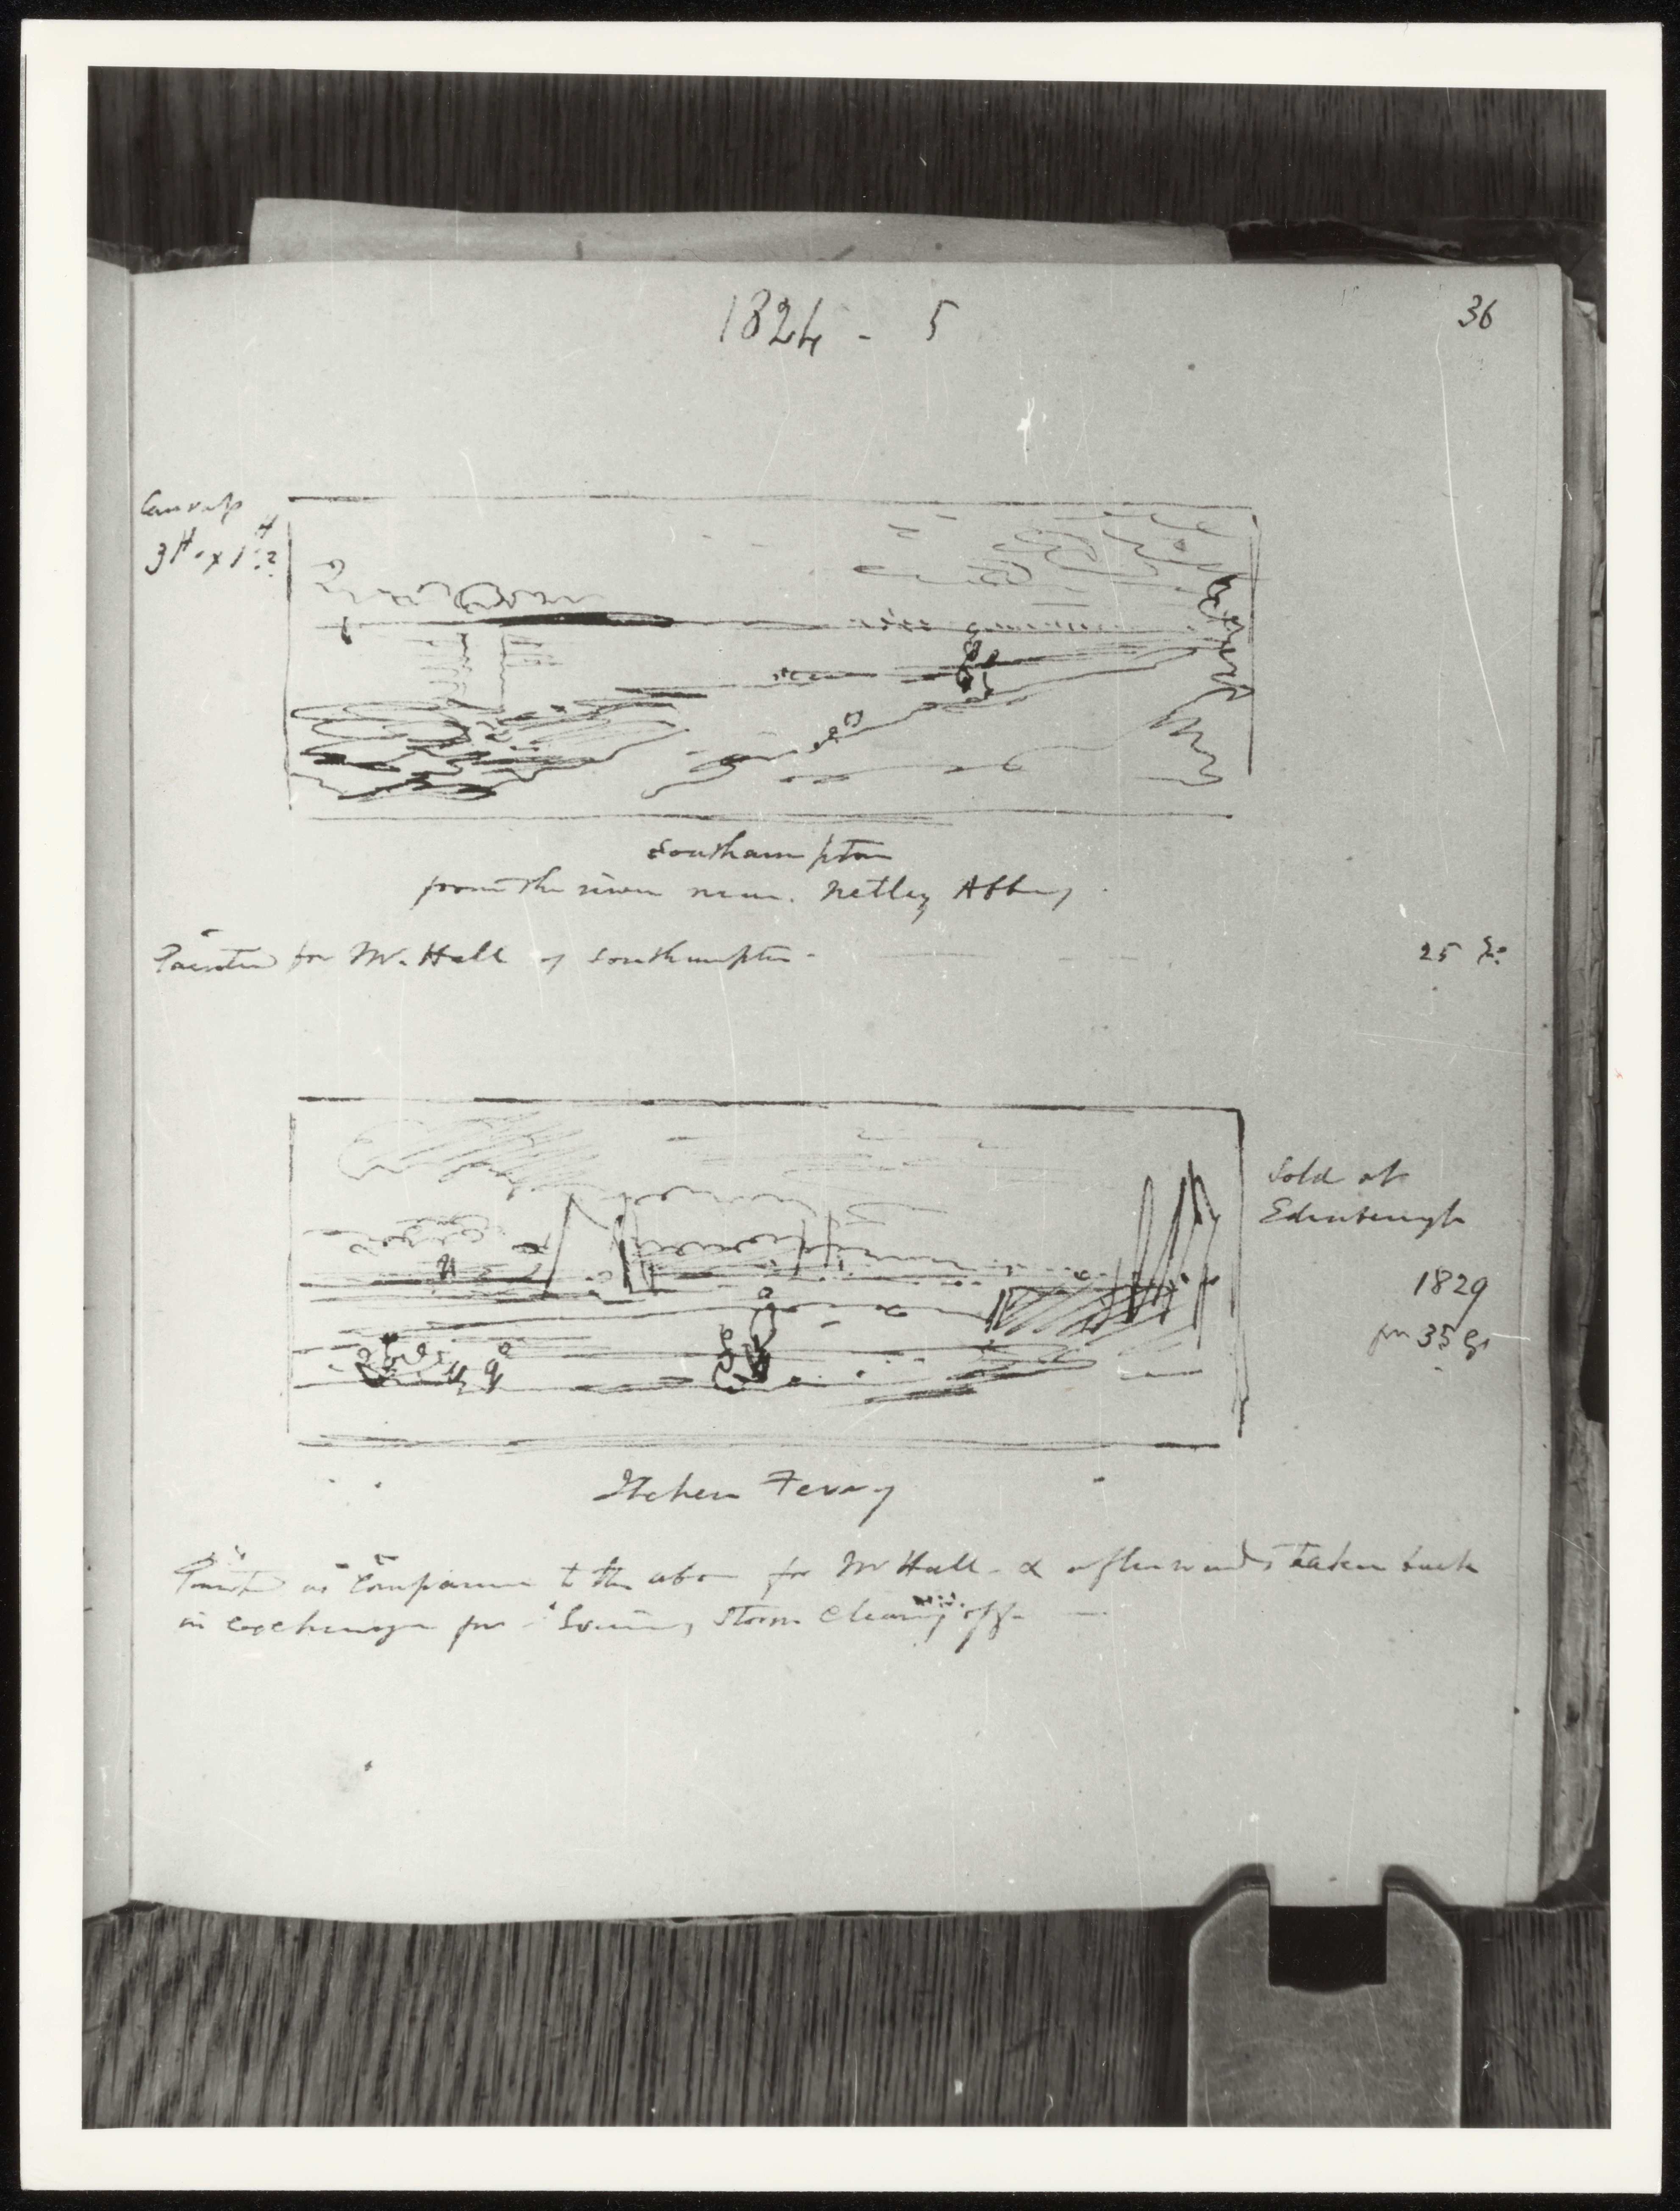 1824 - 5
36
Canvass
3ft. x 1ft.
Southampton
from the river near Netley Abbey
Painted for Mr. Hall of Southampton -
25
Sold at
Edinburgh
1829
for 35 gs
Itchen Ferry
Painted as Companion to the above for Mr Hall - & afterwards taken back
in exchange for Storm Clearing off -